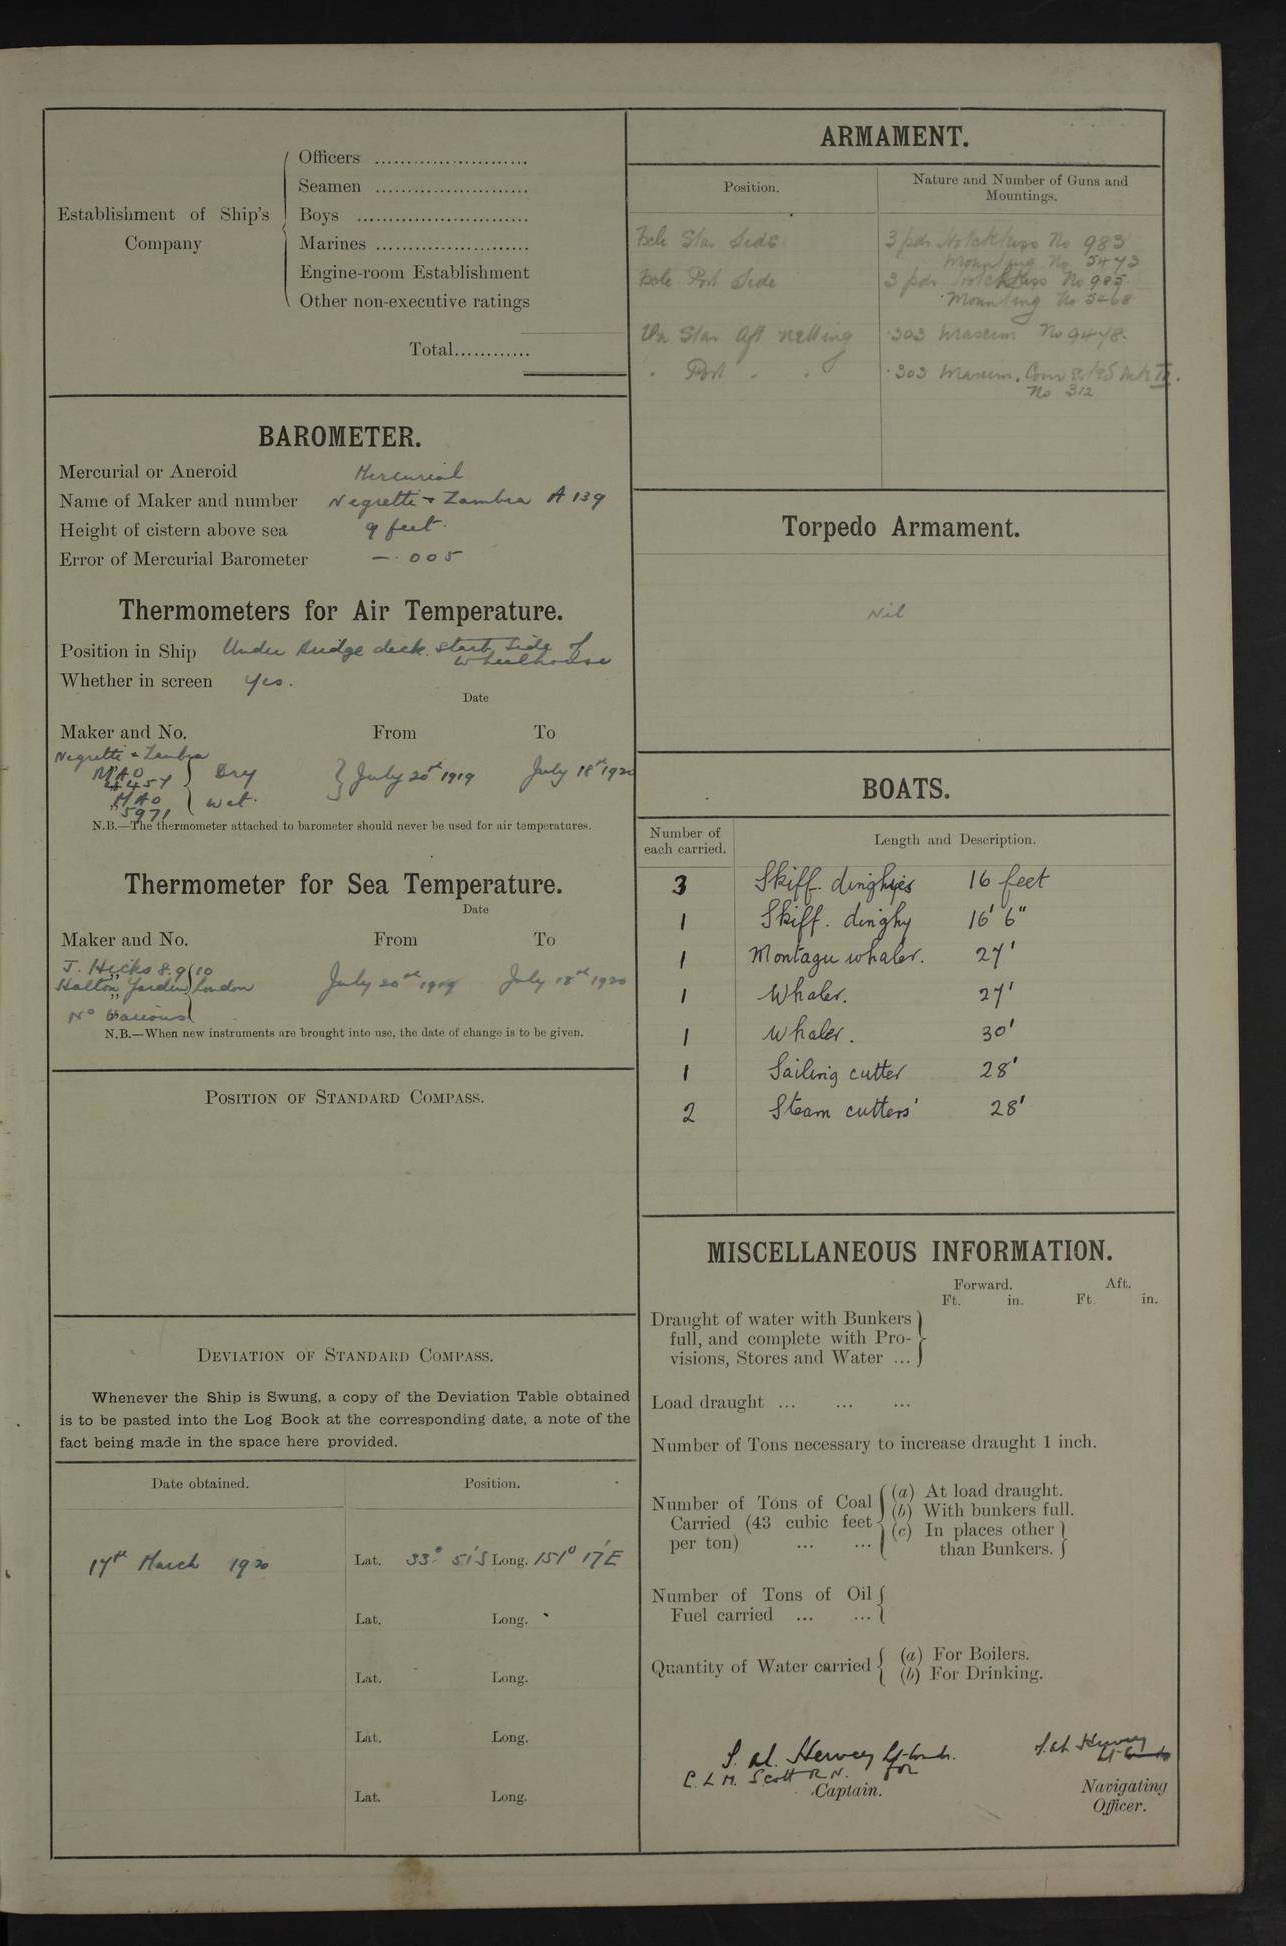 Establishment of Ship's Company
Officers ........................
Seamen ........................
Boys ...........................
Marines ........................
Engine-room Establishment
Other non-executive ratings
Total............
BAROMETER.
Mercurial or Aneroid Mercurial
Name of Maker and number Negretti & Zambra A 139
Height of cistern above sea 9 feet.
Error of Mercurial Barometer — .005
Thermometers for Air Temperature.
Position in Ship Under Bridge deck. Starb. Side of
Wheelhouse
Whether in screen Yes.
Date
Maker and No. From To
Negretti & Zambra
MAO Dry July 20th 1919 July 18th 1920
MAO Wet.
5971
N.B.—The thermometer attached to barometer should never be used for air temperatures.
Thermometer for Sea Temperature.
Date
Maker and No. From To
J. Hicks 8. 9. 10
Hatton Garden London July 20th 1919 July 18th 1920
No Various
N.B.—When new instruments are brought into use, the date of change is to be given.
POSITION OF STANDARD COMPASS.
DEVIATION OF STANDARD COMPASS.
Whenever the Ship is Swung, a copy of the Deviation Table obtained
is to be pasted into the Log Book at the corresponding date, a note of the
fact being made in the space here provided.
Date obtained. Position.
17th March 1920 Lat. 33° 51'S Long. 151° 17'E
Lat. Long.
Lat. Long.
Lat. Long.
Lat. Long.
ARMAMENT.
Position. Nature and Number of Guns and
Mountings.
Star Side 3 pdr Hotchkiss No 983
Mounting No 5473
Port Side 3 pdr Hotchkiss No 985
Mounting No 5468
Star Aft netting .303 Maxim No 9478.
" Port " " .303 Maxim.
No 312
Torpedo Armament.
Nil
BOATS.
Number of
each carried. Length and Description.
3 Skiff. dinghies 16 feet
1 Skiff. dinghy 16' 6"
1 Montagu whaler. 27'
1 Whaler. 27'
1 Whaler. 30'
1 Sailing cutter 28'
2 Steam cutters' 28'
MISCELLANEOUS INFORMATION.
Forward. Aft.
Ft. in. Ft. in.
Draught of water with Bunkers
full, and complete with Pro-
visions, Stores and Water ...
Load draught ... ... ...
Number of Tons necessary to increase draught 1 inch.
Number of Tons of Coal (a) At load draught.
Carried (43 cubic feet (b) With bunkers full.
per ton) ... ... (c) In places other
than Bunkers.
Number of Tons of Oil
Fuel carried ... ...
Quantity of Water carried (a) For Boilers.
(b) For Drinking.
Hervey Lt-Comdr.
C. L. M. Scott R.N. for
Captain.
Hervey
Lt-Comdr
Navigating
Officer.